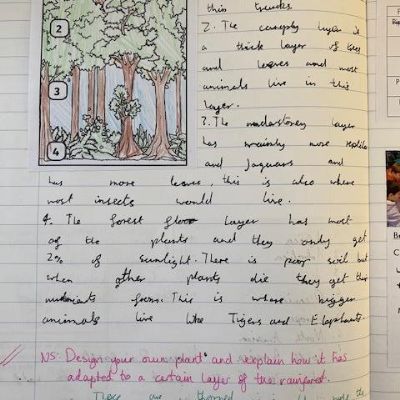 2
3
4
this trunks.
2. The canopy layer is
a thick layer of trees
and leaves and most
animals live in this
layer.
3. The understorey layer
has mainly more reptiles
and Jaguars and
has more leaves, this is also where
most insects would live.
4. The forest floor layer has most
of the plants and they only get
2% of sunlight. There is poor soil but
when other plants die they get their
nutrients from. This is where bigger
animals live like Tigers and Elephants.
NS: Design your own plant and explain how it has
adapted to a certain layer of the rainforest.
There are thorned